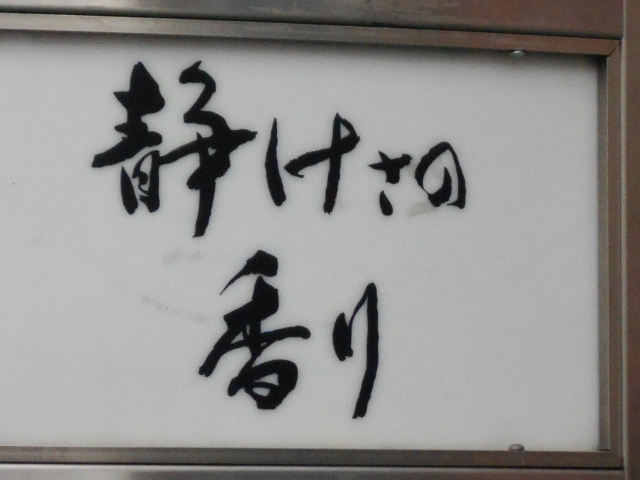 静けさの
香り